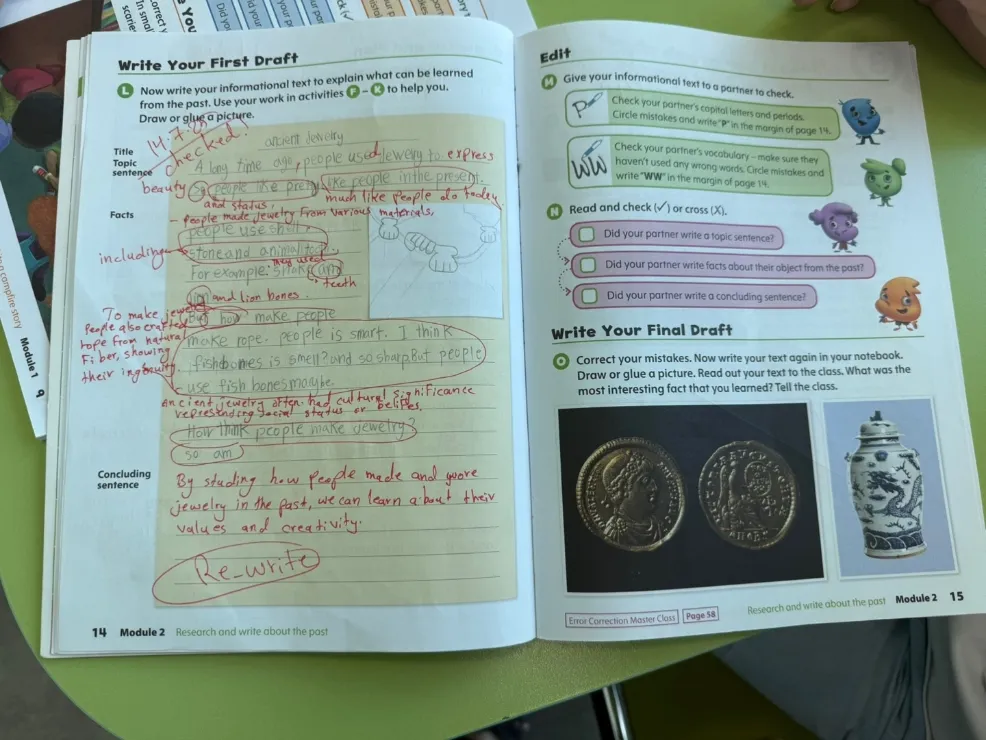 Write Your First Draft
L Now write your informational text to explain what can be learned
from the past. Use your work in activities F – K to help you.
Draw or glue a picture.
14.7.
checked!
Title
ancient Jewelry
Topic
sentence
A long time ago, people used Jewelry to express
beauty
So people like prety like people in the present.
and status,
much like people do today
Facts
- People made jewelry from various materials,
people use shell,
including
stone and animal
For example: they used
teeth
lion and lion bones.
To make jewelry
But how make people
People also crafted
rope from natural
Fiber, showing
their ingenuity.
make rope. people is smart. I think
fishbones is smell? and so sharp. But people
use fish bones maybe.
Ancient jewelry often had cultural significance
representing social status or beliefs.
How think people make jewelry?
so am
Concluding
sentence
By studing how people made and wore
jewelry in the past, we can learn about their
values and creativity.
Re-write
14 Module 2 Research and write about the past
Edit
M Give your informational text to a partner to check.
P
Check your partner's capital letters and periods.
Circle mistakes and write "P" in the margin of page 14.
WW
Check your partner's vocabulary – make sure they
haven't used any wrong words. Circle mistakes and
write "WW" in the margin of page 14.
N Read and check (✓) or cross (X).
Did your partner write a topic sentence?
Did your partner write facts about their object from the past?
Did your partner write a concluding sentence?
Write Your Final Draft
O Correct your mistakes. Now write your text again in your notebook.
Draw or glue a picture. Read out your text to the class. What was the
most interesting fact that you learned? Tell the class.
Error Correction Master Class Page 58
Research and write about the past Module 2 15
campfire story
Module 1 9